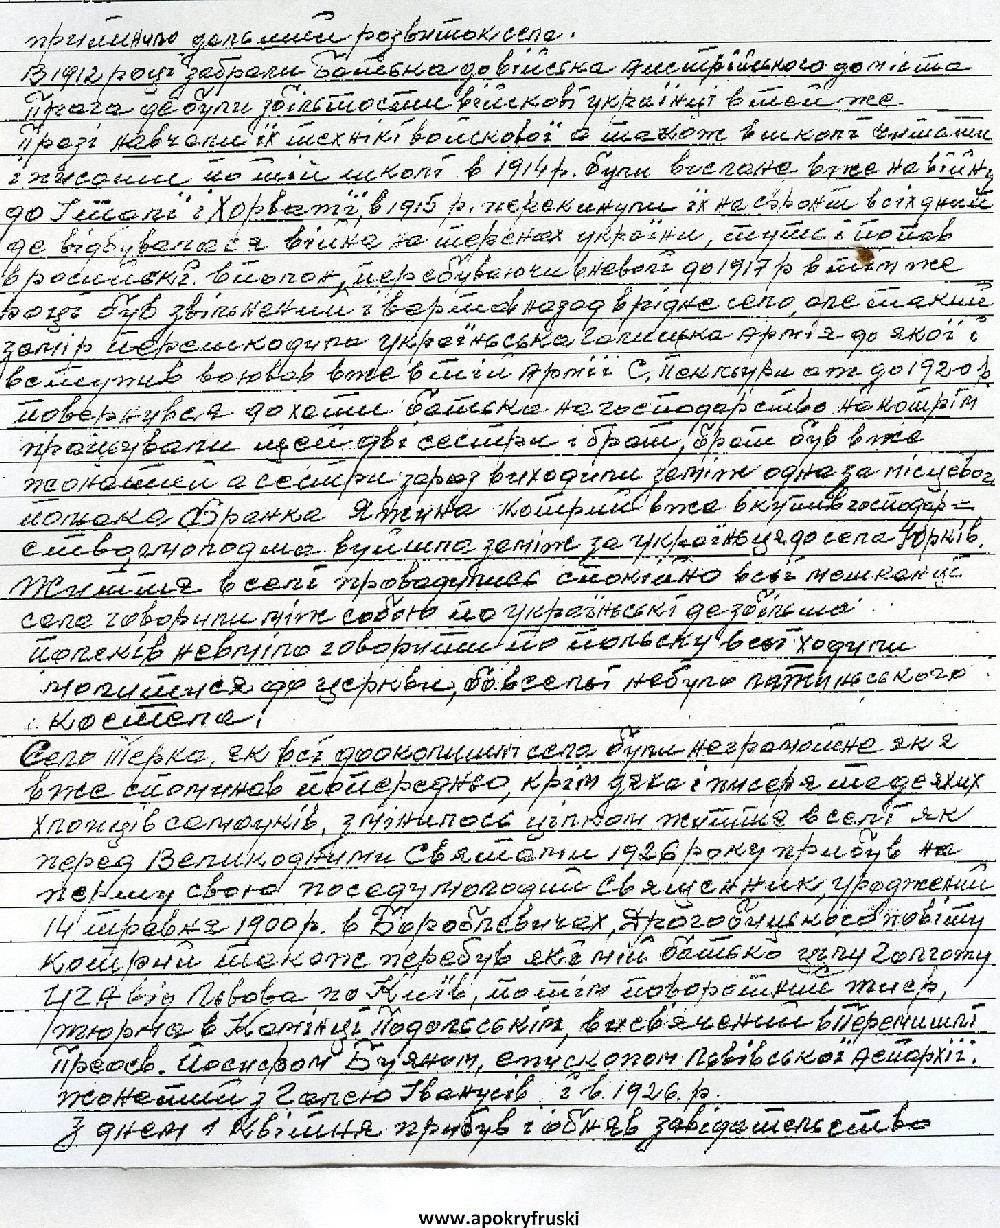 припинило дальший розвиток села.
В 1912 році забрали батька до війська австрійського до міста
Прага де були збільшости війскові українці в тей же
Празі навчали їх технікі войскової а также в школі читати
і писати по тій школі в 1914 р. були выслане вже на війну
до Італії і Хорватії, в 1915 р. перекинули їх на фронт всіхдний
де відбувалася війна на теренах україни, тут і попав
в російські. в полон, перебуваючи в неволі до 1917 р в тім же
році був звільнений і вертав назад в рідне село, але такий
замір перешкодила українська Галицька Армія до якої і
вступив воював вже в тій Армії С. Петлюри аж до 1920 р
повернувся до хати батька на господарство на котрім
працювали щей дві сестри і брат, брат був вже
жонатий а сестри зараз выходили заміж одна за місцевого
поляка Франка Яжина котрий вже вкупив господар-
ство а молодша вуйшла заміж за українця до села Юрків.
Життя в селі провадились спокійно всі мешканці
села говорили між собою по українські де збільша
поляків невміло говорити по польску всі ходили
молитися до церкви, бо в селі небуло латинського
костела.
Село Терка, як всі дооколишні села були неграмотне як я
вже споминав попередньо, крім дяка і писаря та деяких
хлопців самоуків, змінилось цілком життя в селі як
перед Великодними Святами 1926 року прибув на
першу свою посаду молодий Священник, уроджений
14 травня 1900 р. в Бороблевичах, Дрогобицького повіту
котрий также перебув як і мій батько цілу Голготу
УГА від Львова по Київ, потім поворотний тиф,
тюрма в Камінці Подольськім, висвячений в Перемишлі
Преосв. Йосифом Буяном, епископом Львівської Aепархії.
жонатий з Галею Іванусів і в 1926. р.
З днем 1 Квітня прибув і обняв завідательство
www.apokryfruski